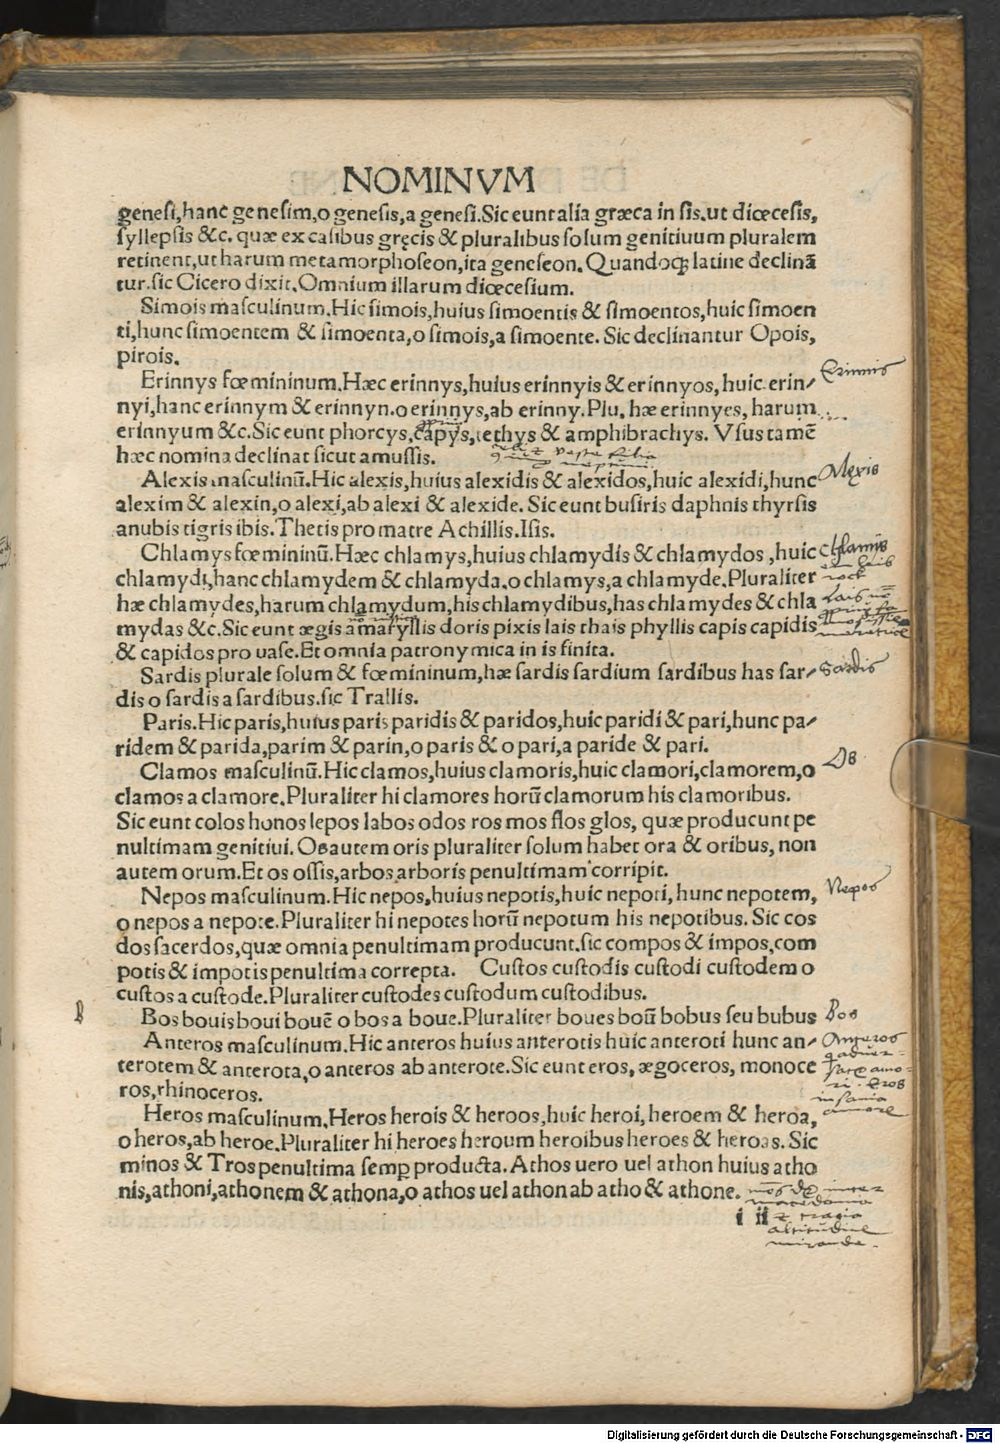 NOMINVM
genesi,hanc genesim,o genesis,a genesi.Sic eunt alia græca in sis.ut diœcesis,
syllepsis &c. quæ ex casibus gręcis & pluralibus solum genitiuum pluralem
retinent,ut harum metamorphoseon,ita geneseon.Quandoqꝫ latine declinā
tur.sic Cicero dixit.Omnium illarum diœcesium.
Simois masculinum.Hic simois,huius simoentis & simoentos,huic simoen
ti,hunc simoentem & simoenta,o simois,a simoente. Sic declinantur Opois,
pirois.
Erinnys fœmininum.Hæc erinnys,huius erinnyis & erinnyos, huic erin-
nyi,hanc erinnym & erinnyn.o erinnys,ab erinny.Plu. hæ erinnyes, harum
erinnyum &c.Sic eunt phorcys,capys,tethys & amphibrachys. Vsus tamē
hæc nomina declinat sicut amussis.
Alexis masculinū.Hic alexis,huius alexidis & alexidos,huic alexidi,hunc
alexim & alexin,o alexi,ab alexi & alexide. Sic eunt busiris daphnis thyrsis
anubis tigris ibis.Thetis pro matre Achillis.Isis.
Chlamys fœmininū.Hæc chlamys,huius chlamydis & chlamydos ,huic
chlamydi,hanc chlamydem & chlamyda.o chlamys,a chlamyde.Pluraliter
hæ chlamydes,harum chlamydum,his chlamydibus,has chlamydes & chla
mydas &c.Sic eunt ægis amaryllis doris pixis lais thais phyllis capis capidis
& capidos pro uase.Et omnia patronymica in is finita.
Sardis plurale solum & fœmininum,hæ sardis sardium sardibus has sar-
dis o sardis a sardibus.sic Trallis.
Paris.Hic paris,huius paris paridis & paridos,huic paridi & pari,hunc pa-
ridem & parida,parim & parin,o paris & o pari,a paride & pari.
Clamos masculinū.Hic clamos,huius clamoris,huic clamori,clamorem,o
clamos a clamore.Pluraliter hi clamores horū clamorum his clamoribus.
Sic eunt colos honos lepos labos odos ros mos flos glos, quæ producunt pe
nultimam genitiui. Os autem oris pluraliter solum habet ora & oribus, non
autem orum.Et os ossis,arbos arboris penultimam corripit.
Nepos masculinum.Hic nepos,huius nepotis,huic nepoti, hunc nepotem,
o nepos a nepote.Pluraliter hi nepotes horū nepotum his nepotibus. Sic cos
dos sacerdos,quæ omnia penultimam producunt.sic compos & impos,com
potis & impotis penultima correpta. Custos custodis custodi custodem o
custos a custode.Pluraliter custodes custodum custodibus.
Bos bouis boui bouē o bos a boue.Pluraliter boues boū bobus seu bubus
Anteros masculinum.Hic anteros huius anterotis huic anteroti hunc an-
terotem & anterota,o anteros ab anterote.Sic eunt eros, ægoceros, monoce
ros,rhinoceros.
Heros masculinum.Heros herois & heroos,huic heroi,heroem & heroa,
o heros,ab heroe.Pluraliter hi heroes heroum heroibus heroes & heroas. Sic
minos & Tros penultima semꝑ producta.Athos uero uel athon huius atho
nis,athoni,athonem & athona,o athos uel athon ab atho & athone.
i ii
Erinnis
Alexis
Chlamys
Sardis
Os
Nepos
Bos
Anteros
insania
amore
macedonia
altitudine
miranda.
Digitalisierung gefördert durch die Deutsche Forschungsgemeinschaft - DFG